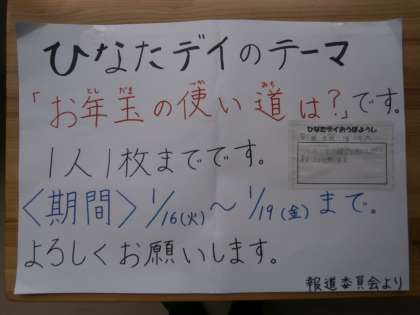 ひなたデイのテーマ
「お年玉の使い道は?」です。
1人1枚までです。
ひなたデイおうぼようし
〈期間〉1/16(火)〜1/19(金)まで。
よろしくお願いします。
報道委員会より